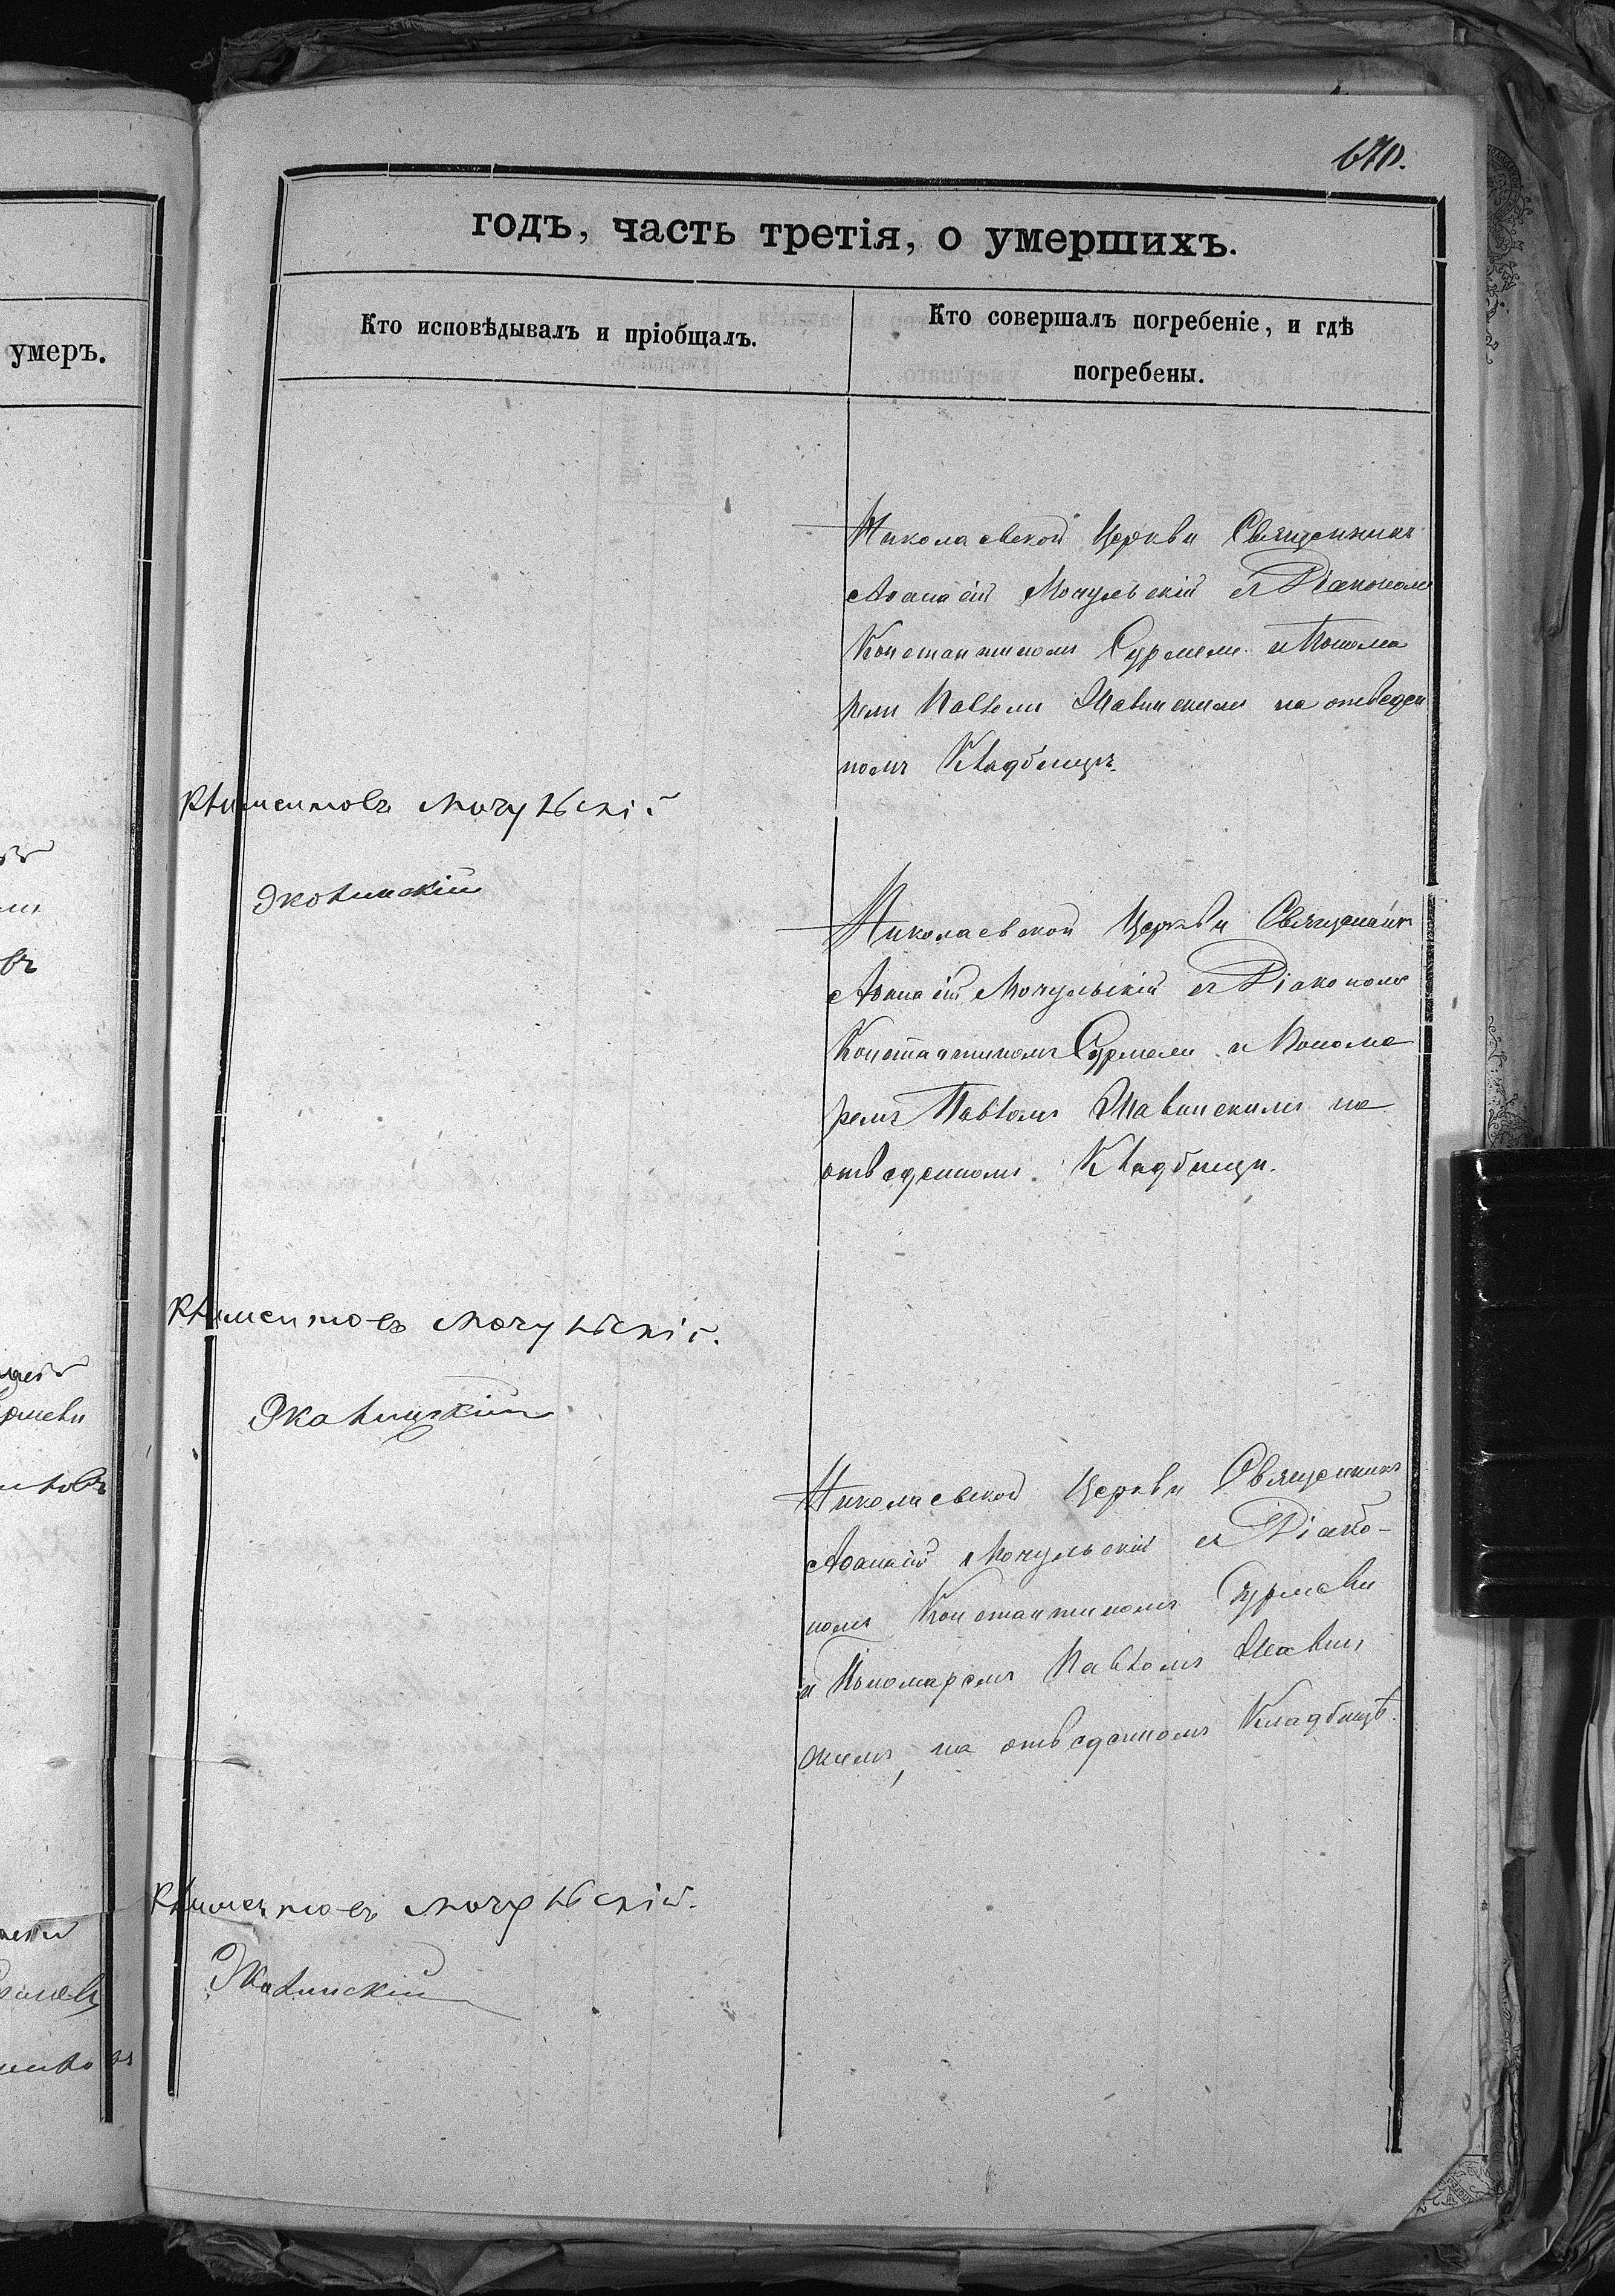 670.
годъ, часть третія, о умершихъ.
умеръ.
Кто исповѣдывалъ и пріобщалъ.
Кто совершалъ погребеніе, и гдѣ
погребены.
Николаевской Церкви Священникъ
Аѳанасій Мочульскій съ Діакономъ
Константиномъ Сурмели и Понома
ремъ Павломъ Шавинскимъ на отведен
номъ Кладбищѣ.
Климентовъ Мочульскій
Николаевской Церкви Священникъ
Аѳанасій Мочульскій съ Діакономъ
Константиномъ Сурмели и Понома
ремъ Павломъ Шавинскимъ на
отведенномъ Кладбищи.
Климентовъ Мочульскій.
Николаевской Церкви Священникъ
Аѳанасій Мочульскій съ Діако-
номъ Константиномъ Сурмели
и Пономаремъ Павломъ Шавин
скимъ, на отведенномъ Кладбищѣ.
Климентовъ Мочульскій.